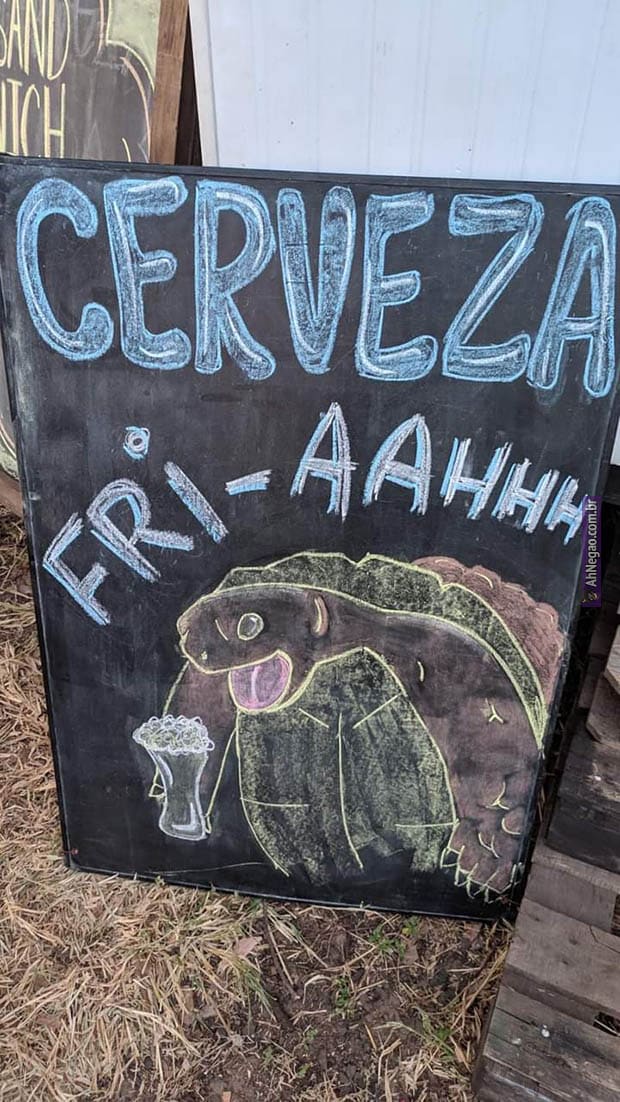 SAND
WICH
CERVEZA
FRI-AAHHH
AhNegao.com.br